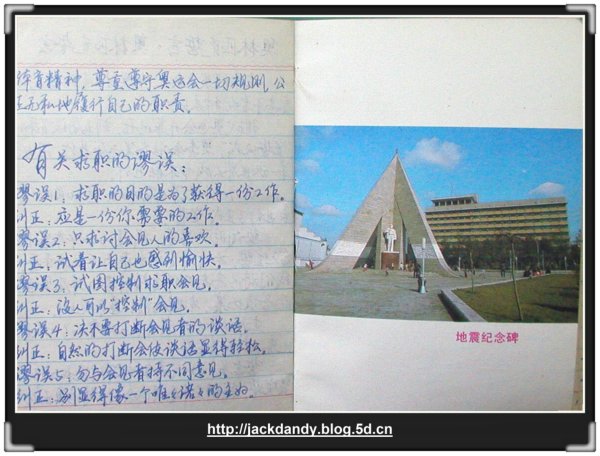 体育精神,尊重遵守奥运会一切规则,公
正无私地履行自己的职责。
有关求职的谬误:
谬误1:求职的目的是为了获得一份工作。
纠正:应是一份你需要的工作。
谬误2:只求讨会见人的喜欢。
纠正:试着让自己也感到愉快。
谬误3:试图控制求职会见。
纠正:没人可以"控制"会见。
谬误4:决不要打断会见者的谈话。
纠正:自然的打断会使谈话显得轻松。
谬误5:勿与会见者持不同意见。
纠正:别显得像一个唯々诺々的
地震纪念碑
http://jackdandy.blog.5d.cn